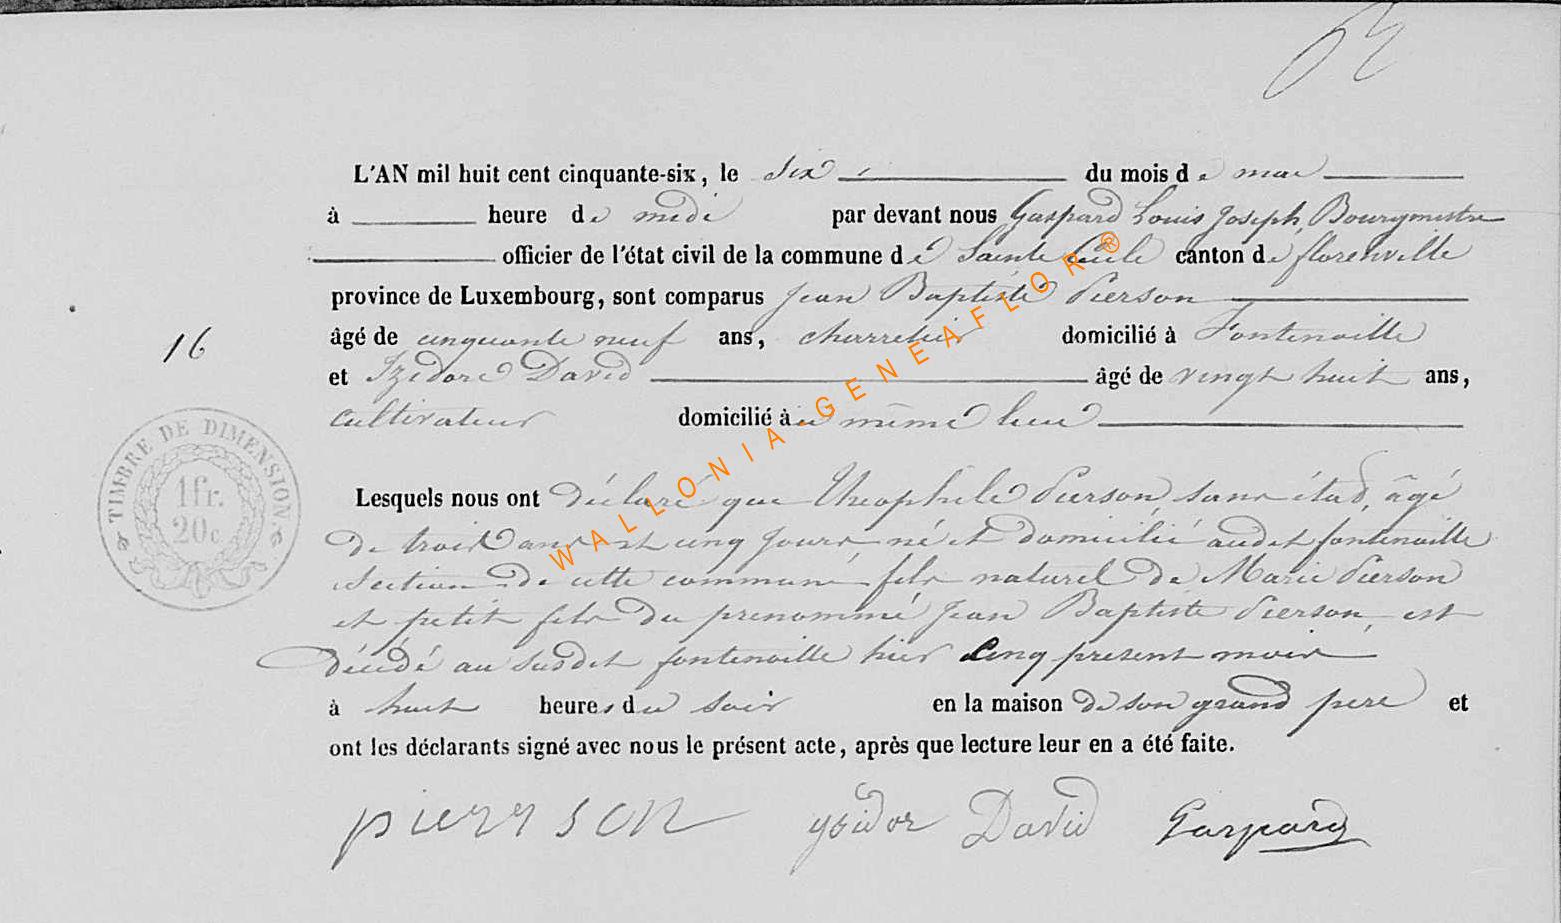 L'AN mil huit cent cinquante-six, le six du mois de mai
à heure de midi par devant nous Gaspard Louis Joseph, Bourgmestre
officier de l'état civil de la commune de Sainte Cécile canton de florenville
province de Luxembourg, sont comparus Jean Baptiste Pierson
âgé de cinquante neuf ans, charretier domicilié à Fontenoille
16
et Izidore David âgé de vingt huit ans,
cultivateur domicilié à même lieu
TIMBRE DE DIMENSION.
1 fr.
20c
Lesquels nous ont déclaré que Théophile Pierson, sans état, âgé
de trois ans et cinq jours, né et domicilié audit fontenoille
section de cette commune fils naturel de Marie Pierson
et petit fils du prenommé Jean Baptiste Pierson, est
décédé au susdit fontenoille hier Cinq présent mois
à huit heures du soir en la maison de son grand pere et
ont les déclarants signé avec nous le présent acte, après que lecture leur en a été faite.
pierrson ysidor David Gaspard
WALLONIA-GENEAFLOR®